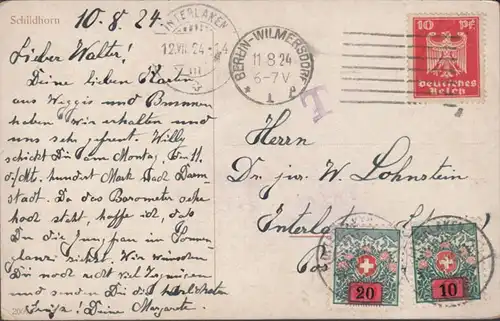 Schildhorn
10.8.24.
Lieber Walter!
Deine lieben Karten
aus Weggis und Brunnen
haben wir erhalten und
uns sehr gefreut. Willy
schickt Dir am Montag, den 11.
d/Mt. hundert Mark nach Darm
stadt. Da das Barometer sehr
hoch steht, hoffe ich, daß
Du die Jungfrau im Sonnen-
glanze siehst. Wir wünschen
Dir noch recht viel Vergnügen
und senden Dir die herzlichsten
Grüße! Deine Margarete.
INTERLAKEN
12.VIII.24
BERLIN-WILMERSDORF
11.8.24
6-7V
* 1 *
T
10 PF
Deutsches
Reich
Herrn
Dr. jur. W. Lohnstein
Interlaken
20
10